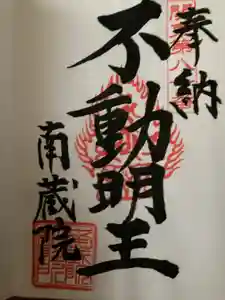 奉納
不動明王
南蔵院